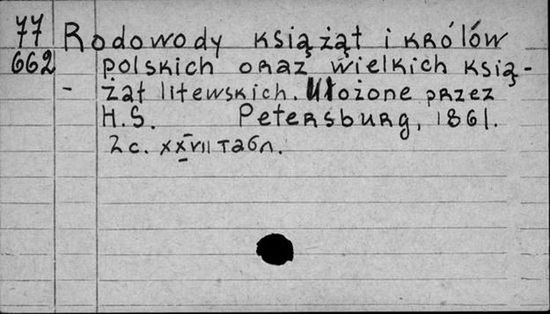 77 Rodowody książąt i królów
662 polskich oraz wielkich ksią-
- żąt litewskich. Ułożone przez
H.S. Petersburg, 1861.
2 с. XXVII табл.